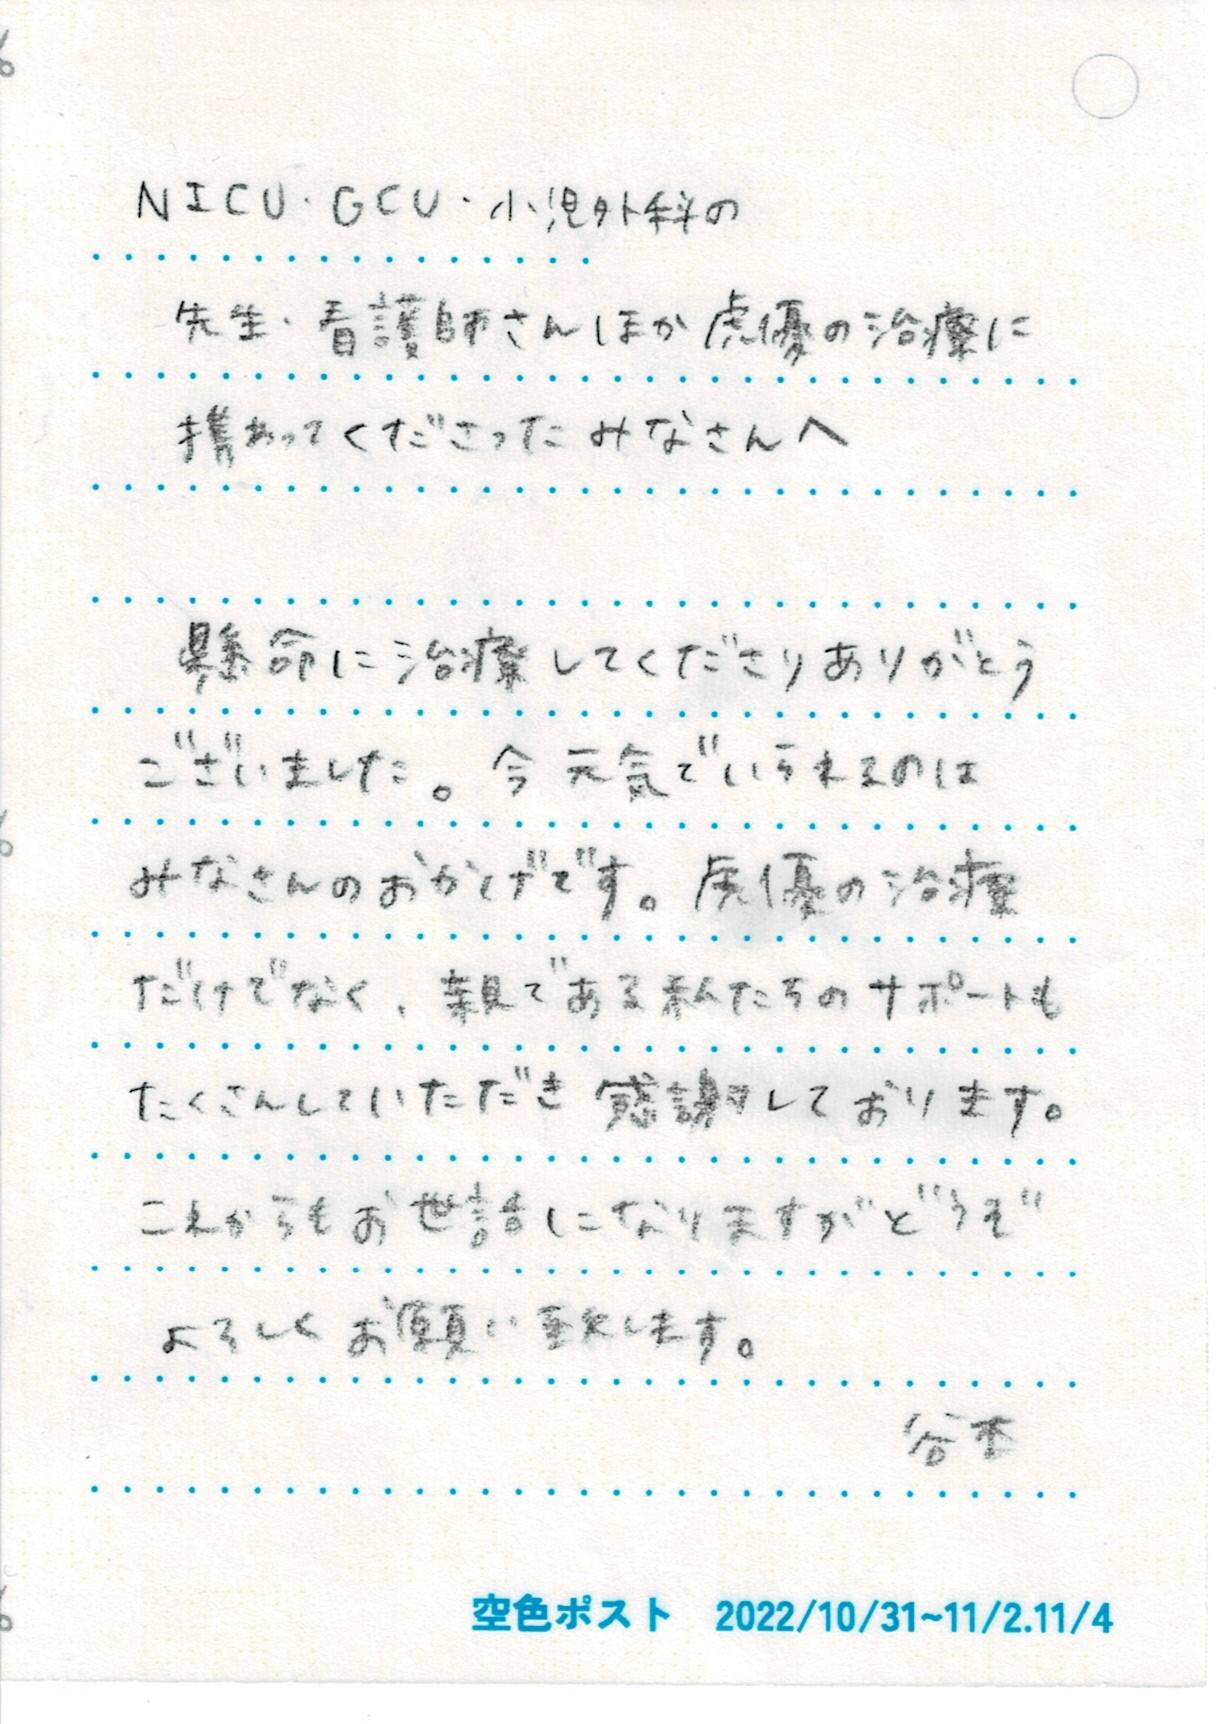 NICU・GCU・小児外科の
先生・看護師さんほか虎優の治療に
携わってくださったみなさんへ
懸命に治療してくださりありがとう
ございました。今元気でいられるのは
みなさんのおかげです。虎優の治療
だけでなく、親である私たちのサポートも
たくさんしていただき感謝しております。
これからもお世話になりますがどうぞ
よろしくお願い致します。
谷本
空色ポスト 2022/10/31~11/2.11/4